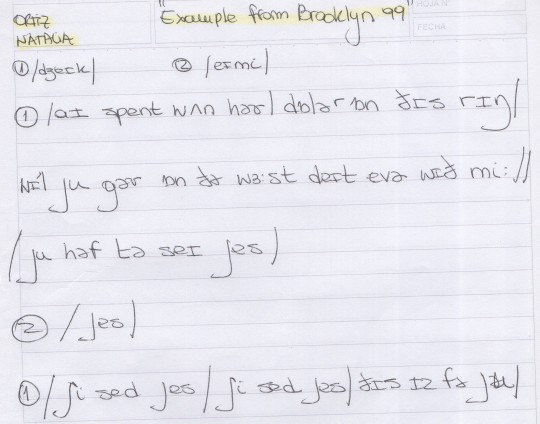 ORTIZ
NATALIA
Example from Brooklyn 99
HOJA Nº
FECHA
① /dʒeɪk/ ② /eɪmi/
① /aɪ spent wʌn hər/ dɒlər ɒn ðɪs rɪŋ/
wɪl ju gər ɒn ðə wɜ:st deɪt evə wɪð mi://
/ju həf tə seɪ jes/
② /jes/
① /ʃi sed jes/ ʃi sed jes/ ðɪs ɪz fə ju/